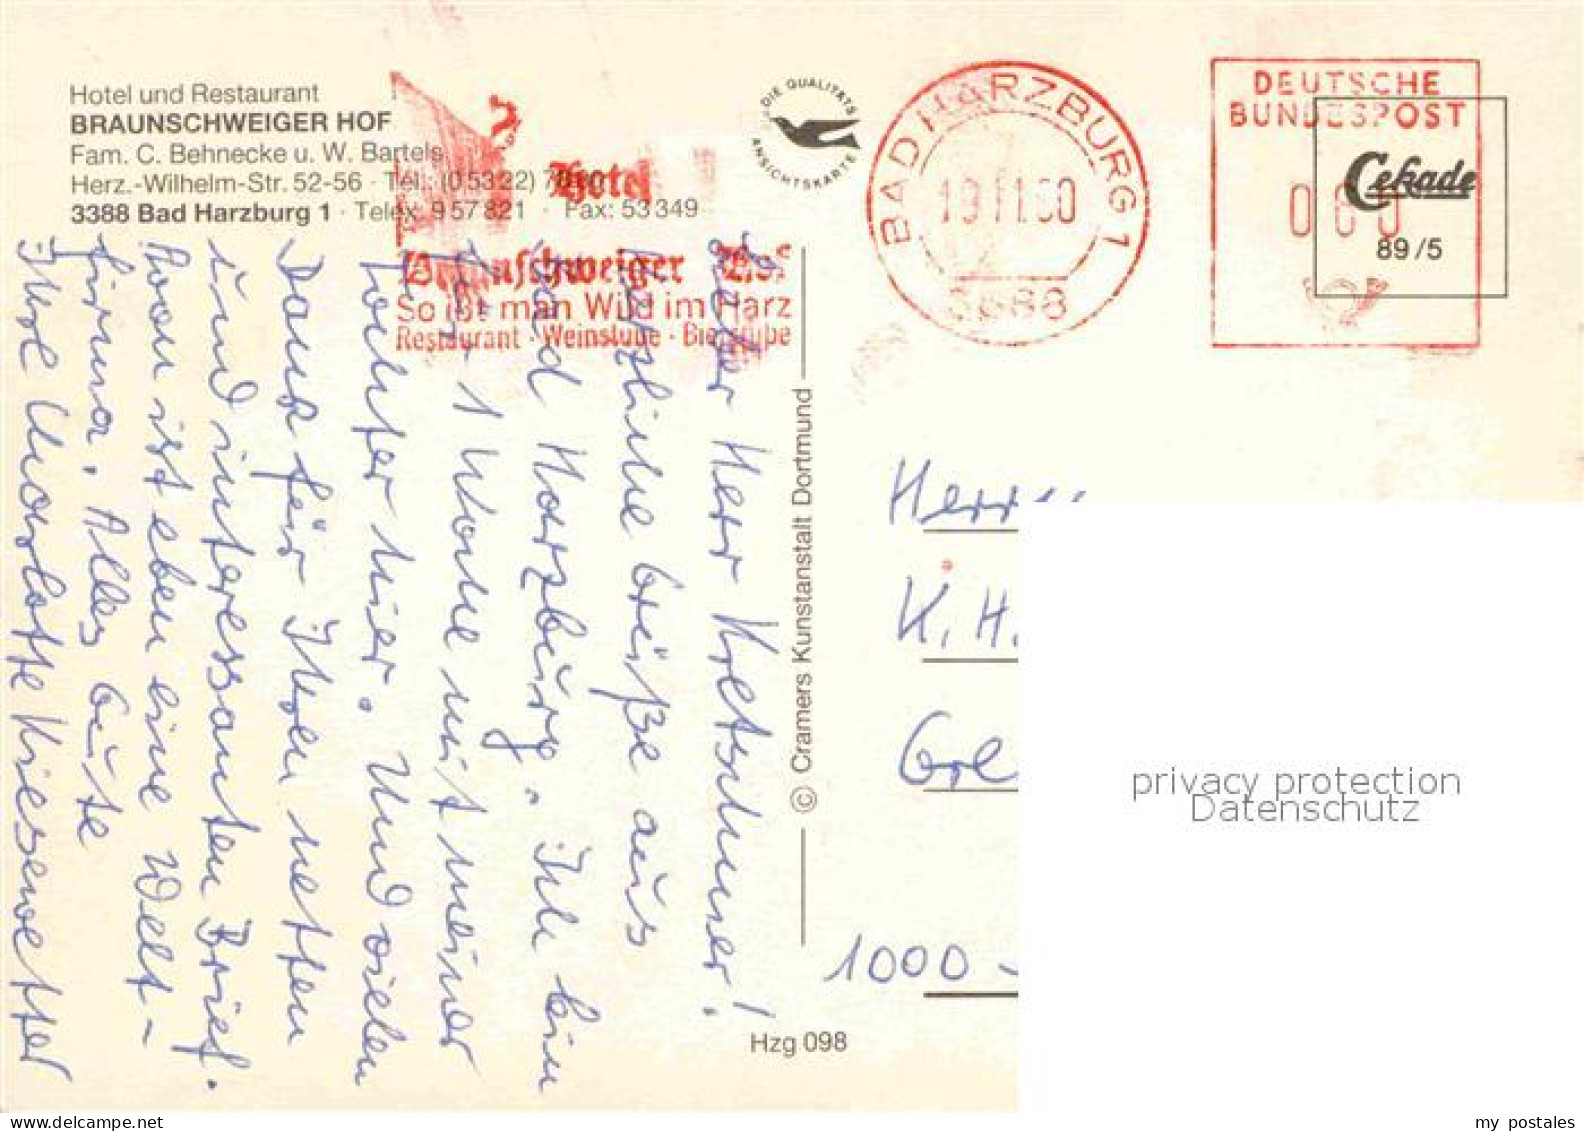 Hotel und Restaurant
BRAUNSCHWEIGER HOF
Fam. C. Behnecke u. W. Bartels
Herz.-Wilhelm-Str. 52-56 · Tel.: (05322)
3388 Bad Harzburg 1 · Telex: 957821 · Fax: 53349
Hotel
Braunschweiger Hof
So ist man Wild im Harz
Restaurant · Weinstube · Bierstube
DIE QUALITÄTS
ANSICHTSKARTE
BAD HARZBURG 1
3388
DEUTSCHE
BUNDESPOST
060
Cekade
89/5
Lieber Herr Kretschmer!
Herzliche Grüße aus
Bad Harzburg. Ich bin
1 Woche mit meiner
Tochter hier. Und vielen
Dank für Ihren netten
und interessanten Brief.
ist eben eine Welt-
firma. Alles Gute
Ihre Charlotte Kiesewetter
© Cramers Kunstanstalt Dortmund
Hzg 098
Herrn
K. H.
1000
privacy protection
Datenschutz
my postales